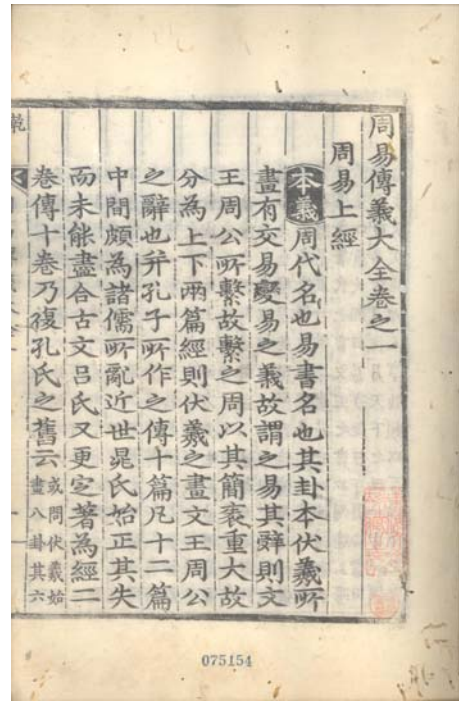 周易傳義大全卷之一
周易上經
本義周代名也易書名也其卦本伏羲所
畫有交易變易之義故謂之易其辭則文
王周公所繫故繫之周以其簡袠重大故
分為上下兩篇經則伏羲之畫文王周公
之辭也幷孔子所作之傳十篇凡十二篇
中間頗為諸儒所亂近世晁氏始正其失
而未能盡合古文呂氏又更定著為經二
卷傳十卷乃復孔氏之舊云或問伏羲始
畫八卦其六
乾
075154